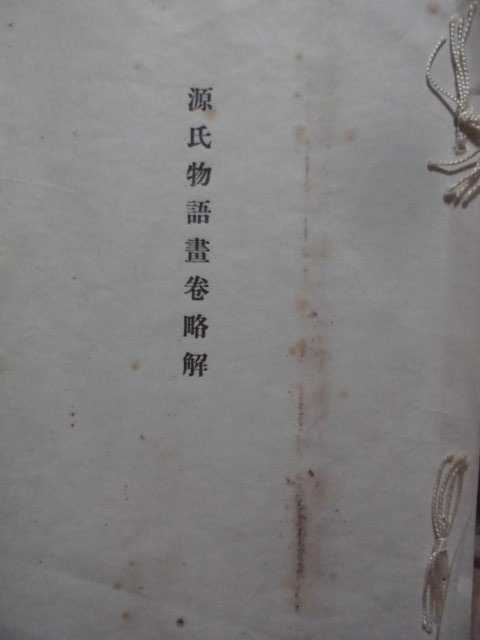 源氏物語畫卷略解